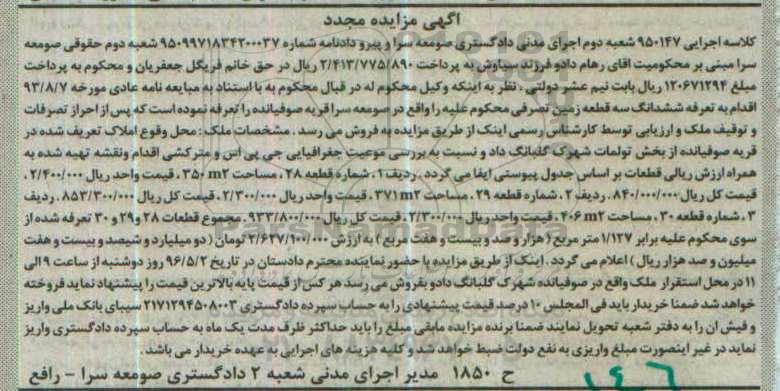 آگهی مزایده مجدد
کلاسه اجرایی ۹۵۰۱۴۷ شعبه دوم اجرای مدنی دادگستری صومعه سرا و پیرو دادنامه شماره ۹۵۰۹۹۷۱۸۳۴۲۰۰۰۳۷ شعبه دوم حقوقی صومعه
سرا مبنی بر محکومیت آقای رهام دادو فرزند سیاوش به پرداخت ۲/۴۱۳/۷۷۵/۸۹۰ ریال در حق خانم فریگل جعفریان و محکوم به پرداخت
مبلغ ۱۲۰۶۷۱۲۹۴ ریال بابت نیم عشر دولتی ، نظر به اینکه وکیل محکوم له در قبال محکوم به با استناد به مبایعه نامه عادی مورخه ۹۳/۸/۷
اقدام به تعرفه ششدانگ سه قطعه زمین تصرفی محکوم علیه را واقع در صومعه سرا قریه صوفیانده را تعرفه نموده است که پس از احراز تصرفات
و توقیف ملک و ارزیابی توسط کارشناس رسمی اینک از طریق مزایده به فروش می رسد . مشخصات ملک : محل وقوع املاک تعریف شده در
قریه صوفیانده از بخش تولمات شهرک گلبانگ داد و نسبت به بررسی موعیت جغرافیایی جی پی اس و مترکشی اقدام ونقشه تهیه شده به
همراه ارزش ریالی قطعات بر اساس جدول پیوستی ایفا می گردد . ردیف ۱ ، شماره قطعه ۲۸ ، مساحت ۳۵۰ m2 ، قیمت واحد ریال ۲/۴۰۰/۰۰۰ ،
قیمت کل ریال ۸۴۰/۰۰۰/۰۰۰ ، ردیف ۲ ، شماره قطعه ۲۹ ، مساحت ۳۷۱ m2 ، قیمت واحد ریال ۲/۳۰۰/۰۰۰ ، قیمت کل ریال ۸۵۳/۳۰۰/۰۰۰ ، ردیف
۳ ، شماره قطعه ۳۰ ، مساحت ۴۰۶ m2 ، قیمت واحد ریال ۲/۳۰۰/۰۰۰ ، قیمت کل ریال ۹۳۳/۸۰۰/۰۰۰ ، مجموع قطعات ۲۸ و ۲۹ و ۳۰ تعرفه شده از
سوی محکوم علیه برابر ۱/۱۲۷ متر مربع ( هزار و صد و بیست و هفت مربع ) به ارزش ۲/۶۲۷/۱۰۰/۰۰۰ تومان ( دو میلیارد و شیصد و بیست و هفت
میلیون و صد هزار ریال ) اعلام می گردد . اینک از طریق مزایده با حضور نماینده محترم دادستان در تاریخ ۹۶/۵/۲ روز دوشنبه از ساعت ۹ الی
۱۱ در محل استقرار ملک واقع در صوفیانده شهرک گلبانگ دادو بفروش می رسد هر کس از قیمت پایه بالاترین قیمت را پیشنهاد نماید فروخته
خواهد شد ضمنا خریدار باید فی المجلس ۱۰ درصد قیمت پیشنهادی را به حساب سپرده دادگستری ۲۱۷۱۲۹۴۵۰۸۰۰۳ سیبای بانک ملی واریز
و فیش ان را به دفتر شعبه تحویل نمایند ضمنا برنده مزایده مابقی مبلغ را باید حداکثر ظرف مدت یک ماه به حساب سپرده دادگستری واریز
نماید در غیر اینصورت مبلغ واریزی به نفع دولت ضبط خواهد شد و کلیه هزینه های اجرایی به عهده خریدار می باشد .
ح ۱۸۵۰ مدیر اجرای مدنی شعبه ۲ دادگستری صومعه سرا – رافع